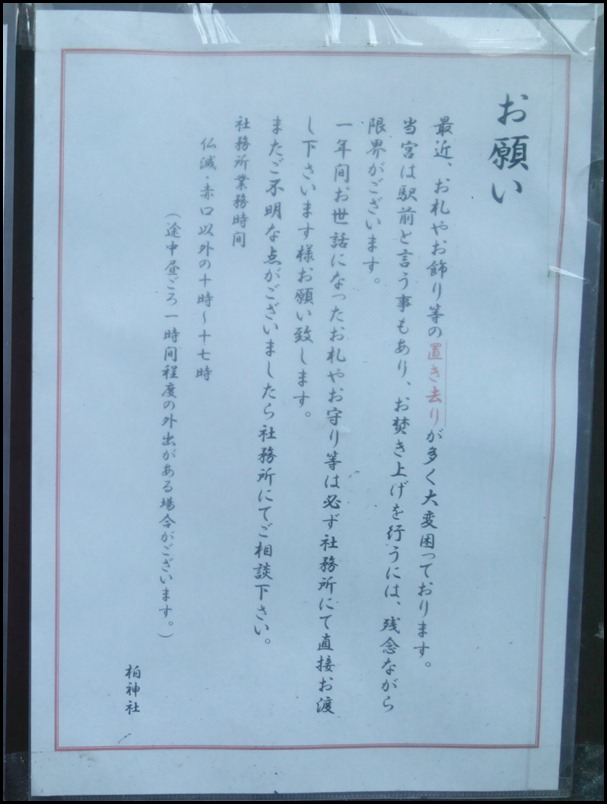 お願い
最近、お札やお飾り等の置き去りが多く大変困っております。
当宮は駅前と言う事もあり、お焚き上げを行うには、残念ながら
限界がございます。
一年間お世話になったお札やお守り等は必ず社務所にて直接お渡
し下さいます様お願い致します。
またご不明な点がございましたら社務所にてご相談下さい。
社務所業務時間
仏滅・赤口以外の十時～十七時
（途中昼ごろ一時間程度の外出がある場合がございます。）
柏神社